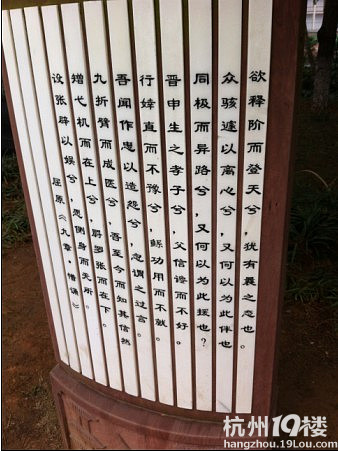 欲释阶而登天兮，犹有曩之态也。
众骇遽以离心兮，又何以为此伴也
同极而异路兮，又何以为此援也？
晋申生之孝子兮，父信谗而不好。
行婞直而不豫兮，鲧功用而不就。
吾闻作忠以造怨兮，忽谓之过言。
九折臂而成医兮，吾至今而知其信然
矰弋机而在上兮，罻罗张而在下。
设张辟以娱兮，愿侧身而无所。
屈原《九章·惜诵》
杭州19楼
hangzhou.19Lou.com